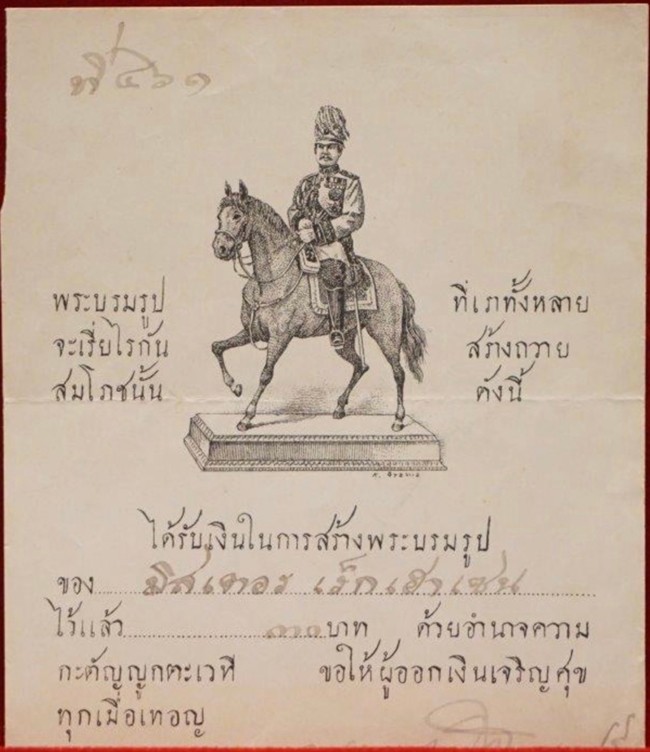 ที่ ๔๖๑
พระบรมรูป ที่เราทั้งหลาย
จะเรี่ยไรกัน สร้างถวาย
สมโภชนั้น ดังนี้
ได้รับเงินในการสร้างพระบรมรูป
ของ มิสเตอร เร็กเฮาเซน
ไว้แล้ว บาท ด้วยอำนาจความ
กะตัญญูกตะเวที ขอให้ผู้ออกเงินเจริญศุข
ทุกเมื่อเทอญ